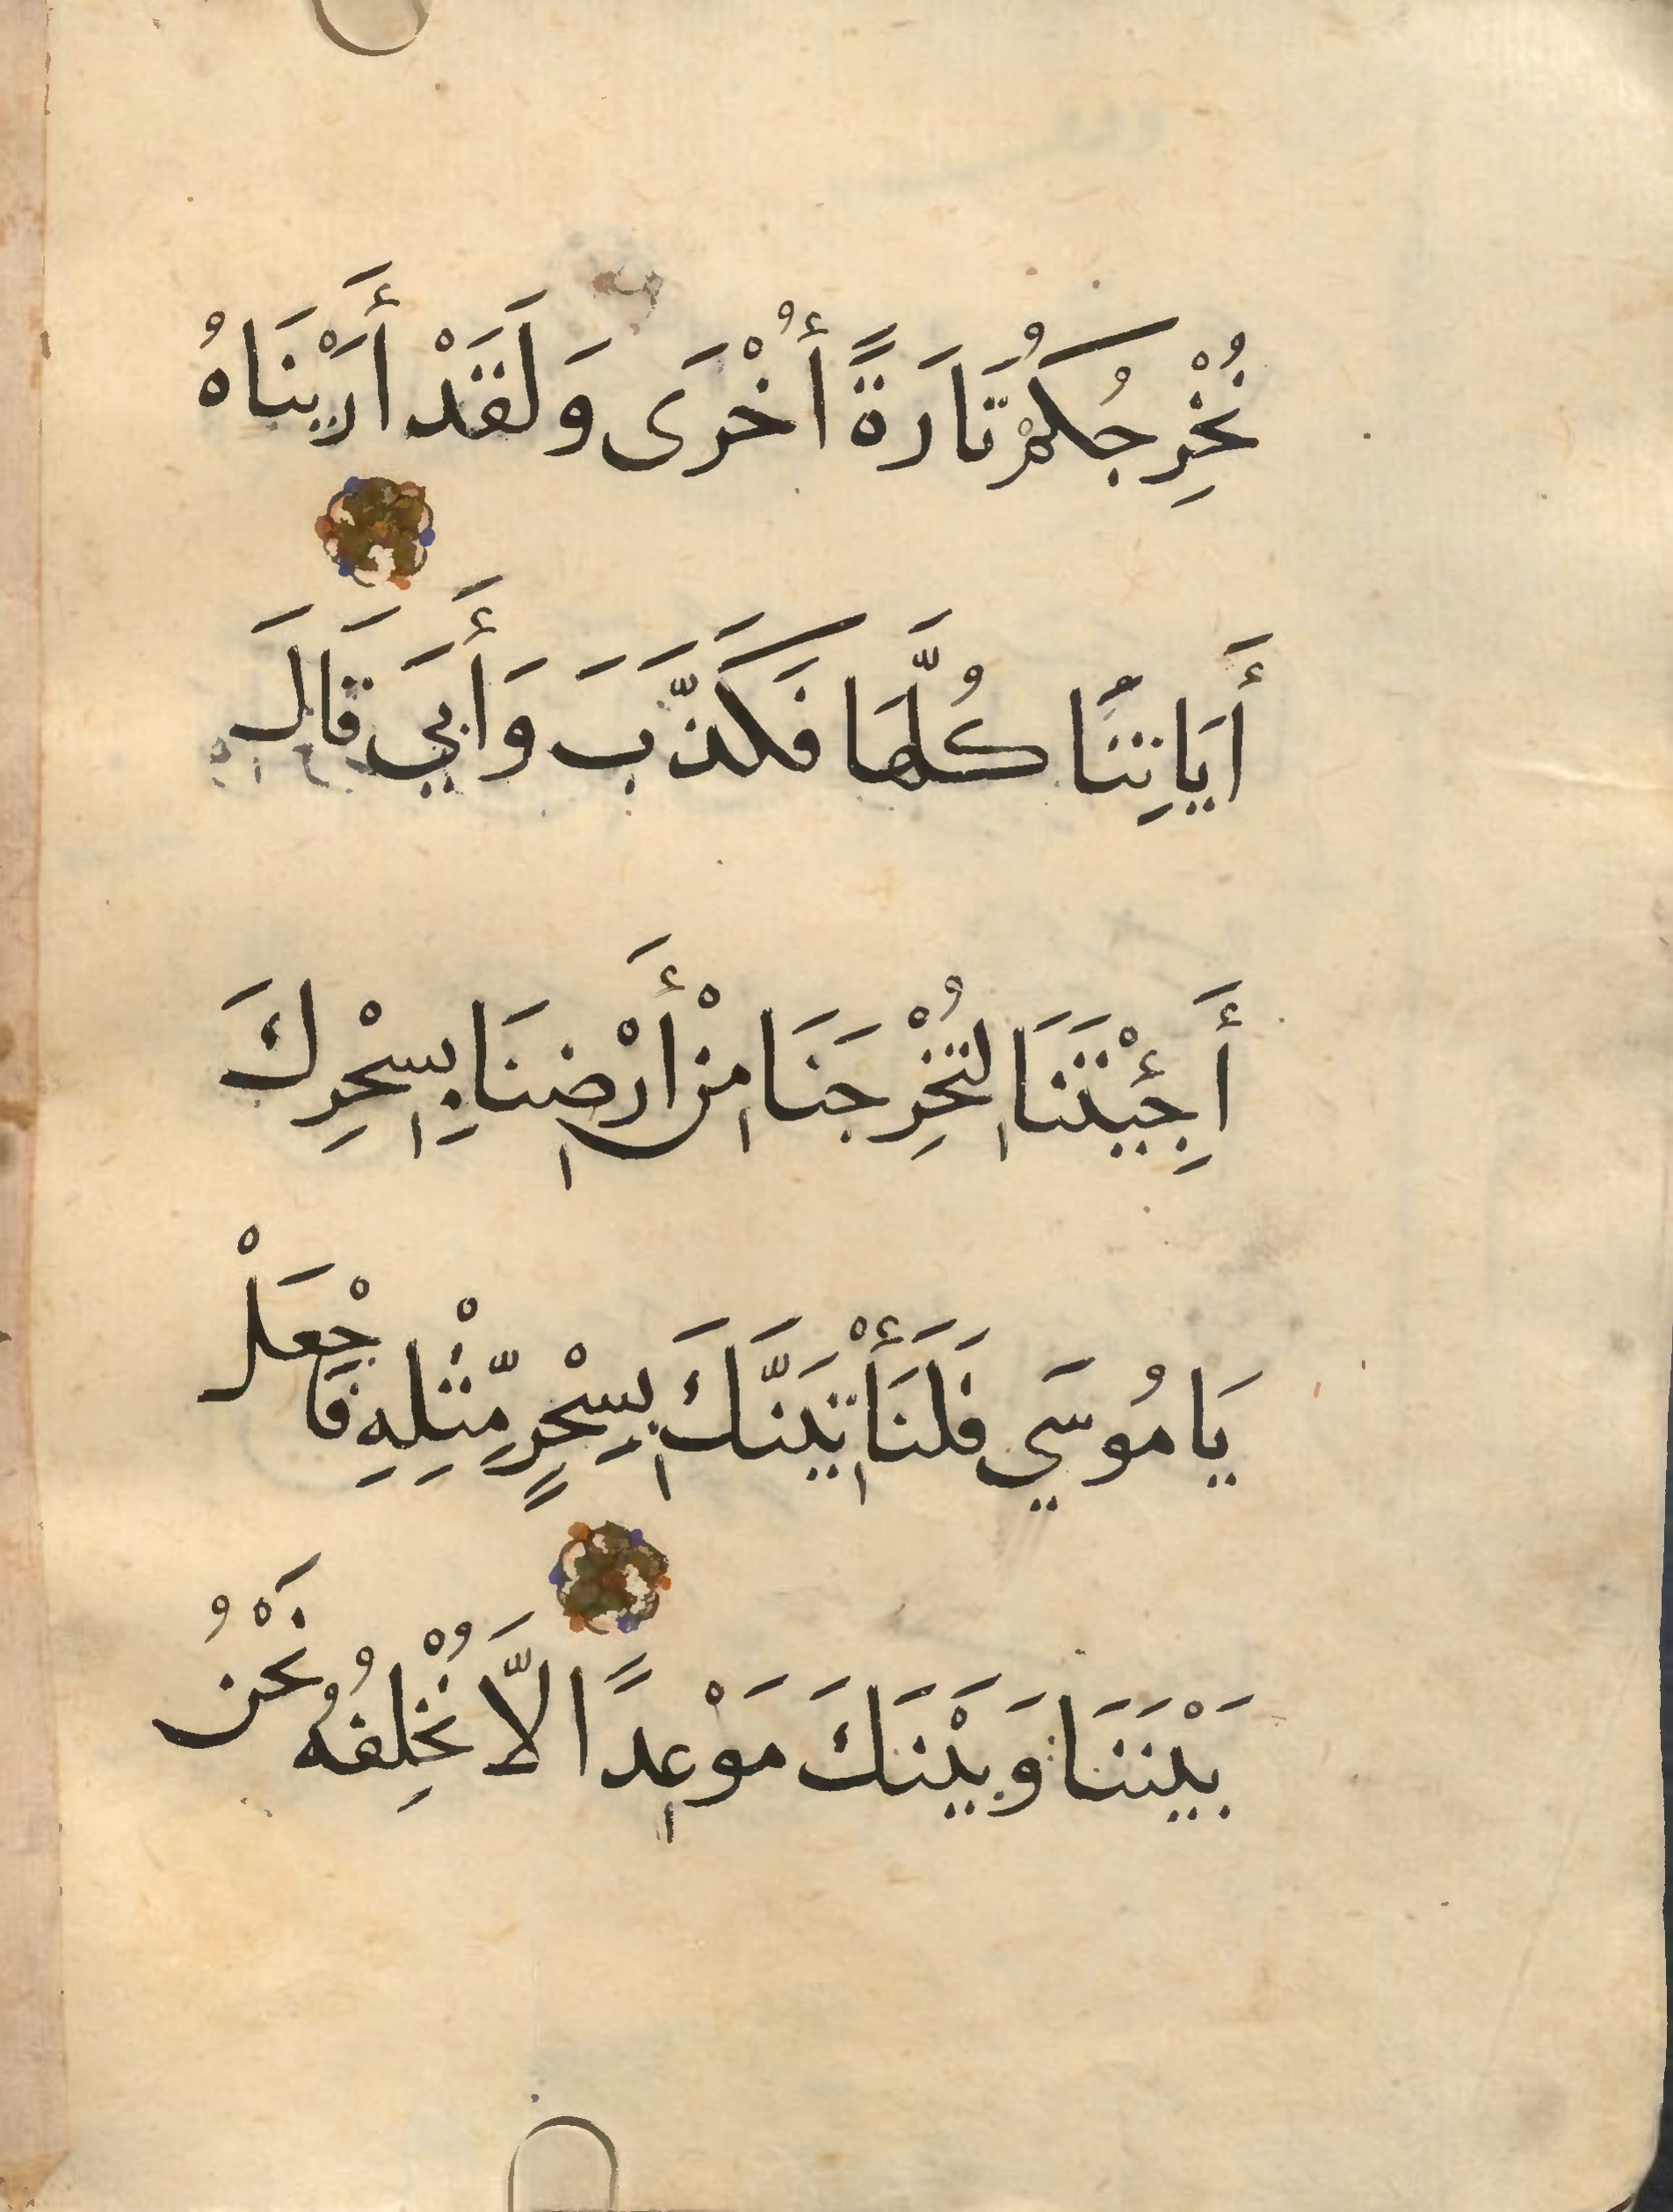 نُخْرِجُكُمْ تَارَةً أُخْرَى وَلَقَدْ أَرَيْنَاهُ
أَيَاتِنَا كُلَّهَا فَكَذَّبَ وَأَبَي قَالَ
أَجِئْتَنَا لِتُخْرِجَنَا مِنْ أَرْضِنَا بِسِحْرِكَ
يَامُوسَي فَلَنَأْتِيَنَّكَ بِسِحْرٍ مِّثْلِهِ فَاجْعَلْ
بَيْنَنَا وَبَيْنَكَ مَوْعِدًا لَّا نُخْلِفُهُ نَحْنُ